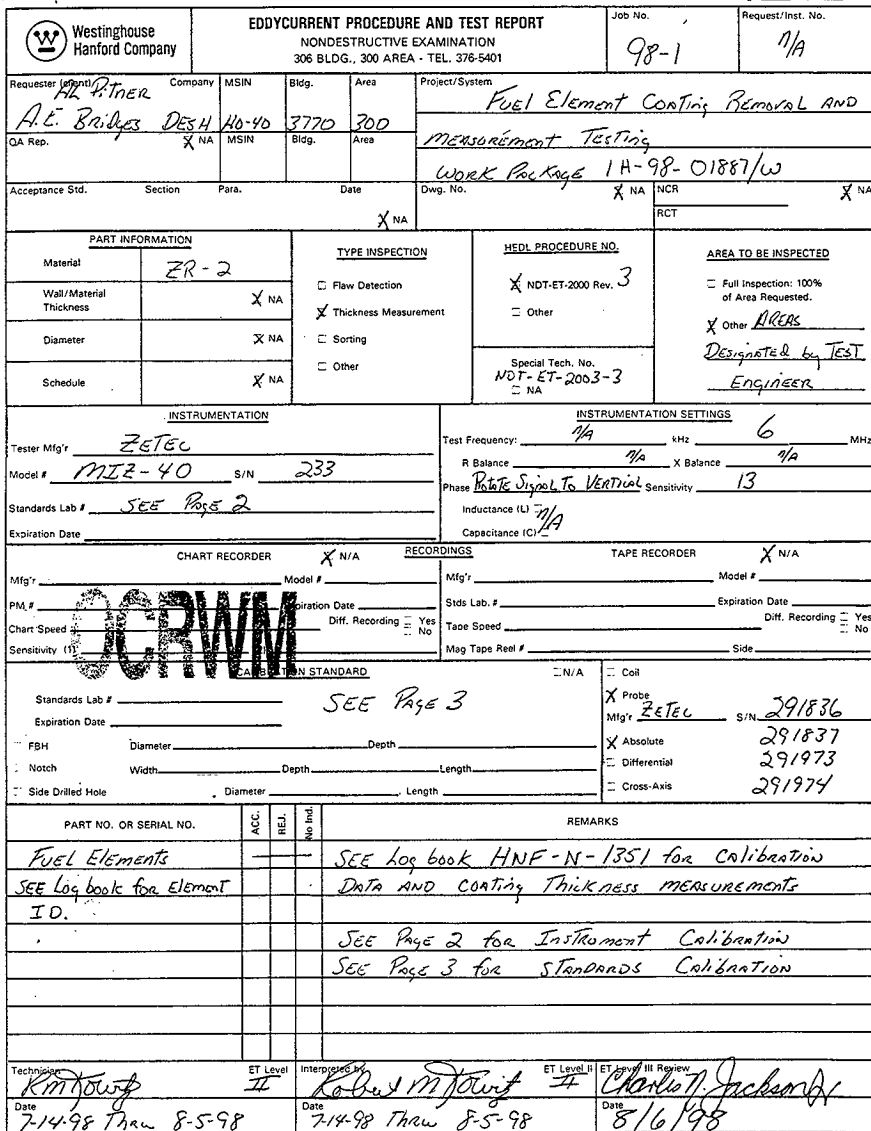 Westinghouse
Hanford Company
EDDYCURRENT PROCEDURE AND TEST REPORT
NONDESTRUCTIVE EXAMINATION
306 BLDG., 300 AREA - TEL. 376-5401
Job No.
98-1
Request/Inst. No.
n/A
Requester (client) Company MSIN Bldg. Area
AL PITNER
A.E. Bridges DESH H0-40 3770 300
Project/System
FUEL Element COATing REMOVAL AND
MEASUREMENT TESTING
WORK PACKAGE 1H-98-01887/W
QA Rep. X NA MSIN Bldg. Area
Acceptance Std. Section Para. Date
X NA
Dwg. No. X NA
NCR X NA
RCT
PART INFORMATION
Material ZR-2
Wall/Material
Thickness X NA
Diameter X NA
Schedule X NA
TYPE INSPECTION
Flaw Detection
X Thickness Measurement
Sorting
Other
HEDL PROCEDURE NO.
X NDT-ET-2000 Rev. 3
Other
Special Tech. No.
NDT-ET-2003-3
NA
AREA TO BE INSPECTED
Full Inspection: 100%
of Area Requested.
X Other AREAS
DESignATED by TEST
ENGINEER
INSTRUMENTATION
Tester Mfg'r ZETEC
Model # MIZ-40 S/N 233
Standards Lab # SEE PAGE 2
Expiration Date
INSTRUMENTATION SETTINGS
Test Frequency: n/A kHz 6 MHz
R Balance n/A X Balance n/A
Phase ROTATE SignAL TO VERTICAL Sensitivity 13
Inductance (L) n/A
Capacitance (C)
RECORDINGS
CHART RECORDER X N/A
Mfg'r Model #
PM # Expiration Date
Chart Speed Diff. Recording Yes
No
Sensitivity (1)
OCRWM
TAPE RECORDER X N/A
Mfg'r Model #
Stds Lab. # Expiration Date
Tape Speed Diff. Recording Yes
No
Mag Tape Reel # Side
CALIBRATION STANDARD N/A
Standards Lab # SEE PAGE 3
Expiration Date
FBH Diameter Depth
Notch Width Depth Length
Side Drilled Hole Diameter Length
Coil
X Probe
Mfg'r ZETEC S/N 291836
X Absolute 291837
Differential 291973
Cross-Axis 291974
PART NO. OR SERIAL NO. ACC. REJ. No Ind. REMARKS
FUEL ELEMENTS SEE Log book HNF-N-1351 for CALIBRATION
SEE Log book for ELEMENT DATA AND COATing THICKNESS MEASUREMENTS
ID.
SEE PAGE 2 for INSTRUMENT CALIBRATION
SEE PAGE 3 for STANDARDS CALIBRATION
Technician ET Level
II
Date
7-14-98 THRU 8-5-98
Interpreted by ET Level II
Robert M
II
Date
7-14-98 THRU 8-5-98
ET Level III Review
Charles N. Jackson Jr
Date
8/6/98